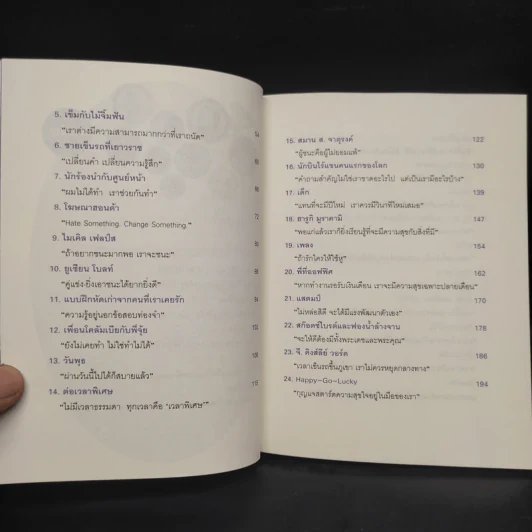 5. เข็มกับไม้จิ้มฟัน
"เราต่างมีความสามารถมากกว่าที่เราถนัด"
6. ชายเข็นรถที่เยาวราช
"เปลี่ยนคำ เปลี่ยนความรู้สึก"
7. นักร้องนำกับศูนย์หน้า
"ผมไม่ได้ทำ เราช่วยกันทำ"
8. โฆษณาฮอนด้า
"Hate Something. Change Something."
9. ไมเคิล เฟลป์ส
"ถ้าอยากชนะมากพอ เราจะชนะ"
10. ยูเซียน โบลท์
"คู่แข่ง-ยิ่งเอาชนะได้ยากยิ่งดี"
11. แบบฝึกหัดเก่าจากคนที่เราเคยรัก
"ความรู้อยู่นอกข้อสอบท่องจำ"
12. เพื่อนโคลัมเบียกับพี่จุ้ย
"ยังไม่เคยทำ ไม่ใช่ทำไม่ได้"
13. วันพุธ
"ผ่านวันนี้ไปได้ก็สบายแล้ว"
14. ต่อเวลาพิเศษ
"ไม่มีเวลาธรรมดา ทุกเวลาคือ 'เวลาพิเศษ'"
15. สมาน ส. จาตุรงค์ 122
"ผู้ชนะคือผู้ไม่ยอมแพ้"
16. นักบินไร้แขนคนแรกของโลก 130
"คำถามสำคัญไม่ใช่เราขาดอะไรไป แต่เป็นเรามีอะไรบ้าง"
17. เด็ก 139
"แทนที่จะมีปีใหม่ เราควรมีวันใหม่เสมอ"
18. ฮารูกิ มูราคามิ 147
"พอแก่แล้วเราก็ยิ่งเรียนรู้ที่จะมีความสุขกับสิ่งที่มี"
19. เพลง 154
"ถ้ารักใครให้ใช้หู"
20. พี่ที่ออฟฟิศ 162
"หากทำงานรอรับเงินเดือน เราจะมีความสุขเฉพาะปลายเดือน"
21. แสตมป์ 170
"ไม่หล่อสิดี จะได้มีแรงพัฒนาตัวเอง"
22. สก๊อตช์ไบรต์และฟองน้ำล้างจาน 178
"จะให้ดีต้องมีทั้งพระเดชและพระคุณ"
23. จี. คิงส์ลีย์ วอร์ด 186
"เวลาเข็นรถขึ้นภูเขา เราไม่ควรหยุดกลางทาง"
24. Happy-Go-Lucky 194
"กุญแจสตาร์ตความสุขใจอยู่ในมือของเรา"